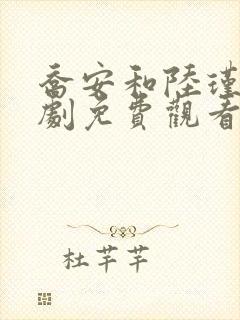 喬安和陸瑾
劇免費觀看
杜芊芊